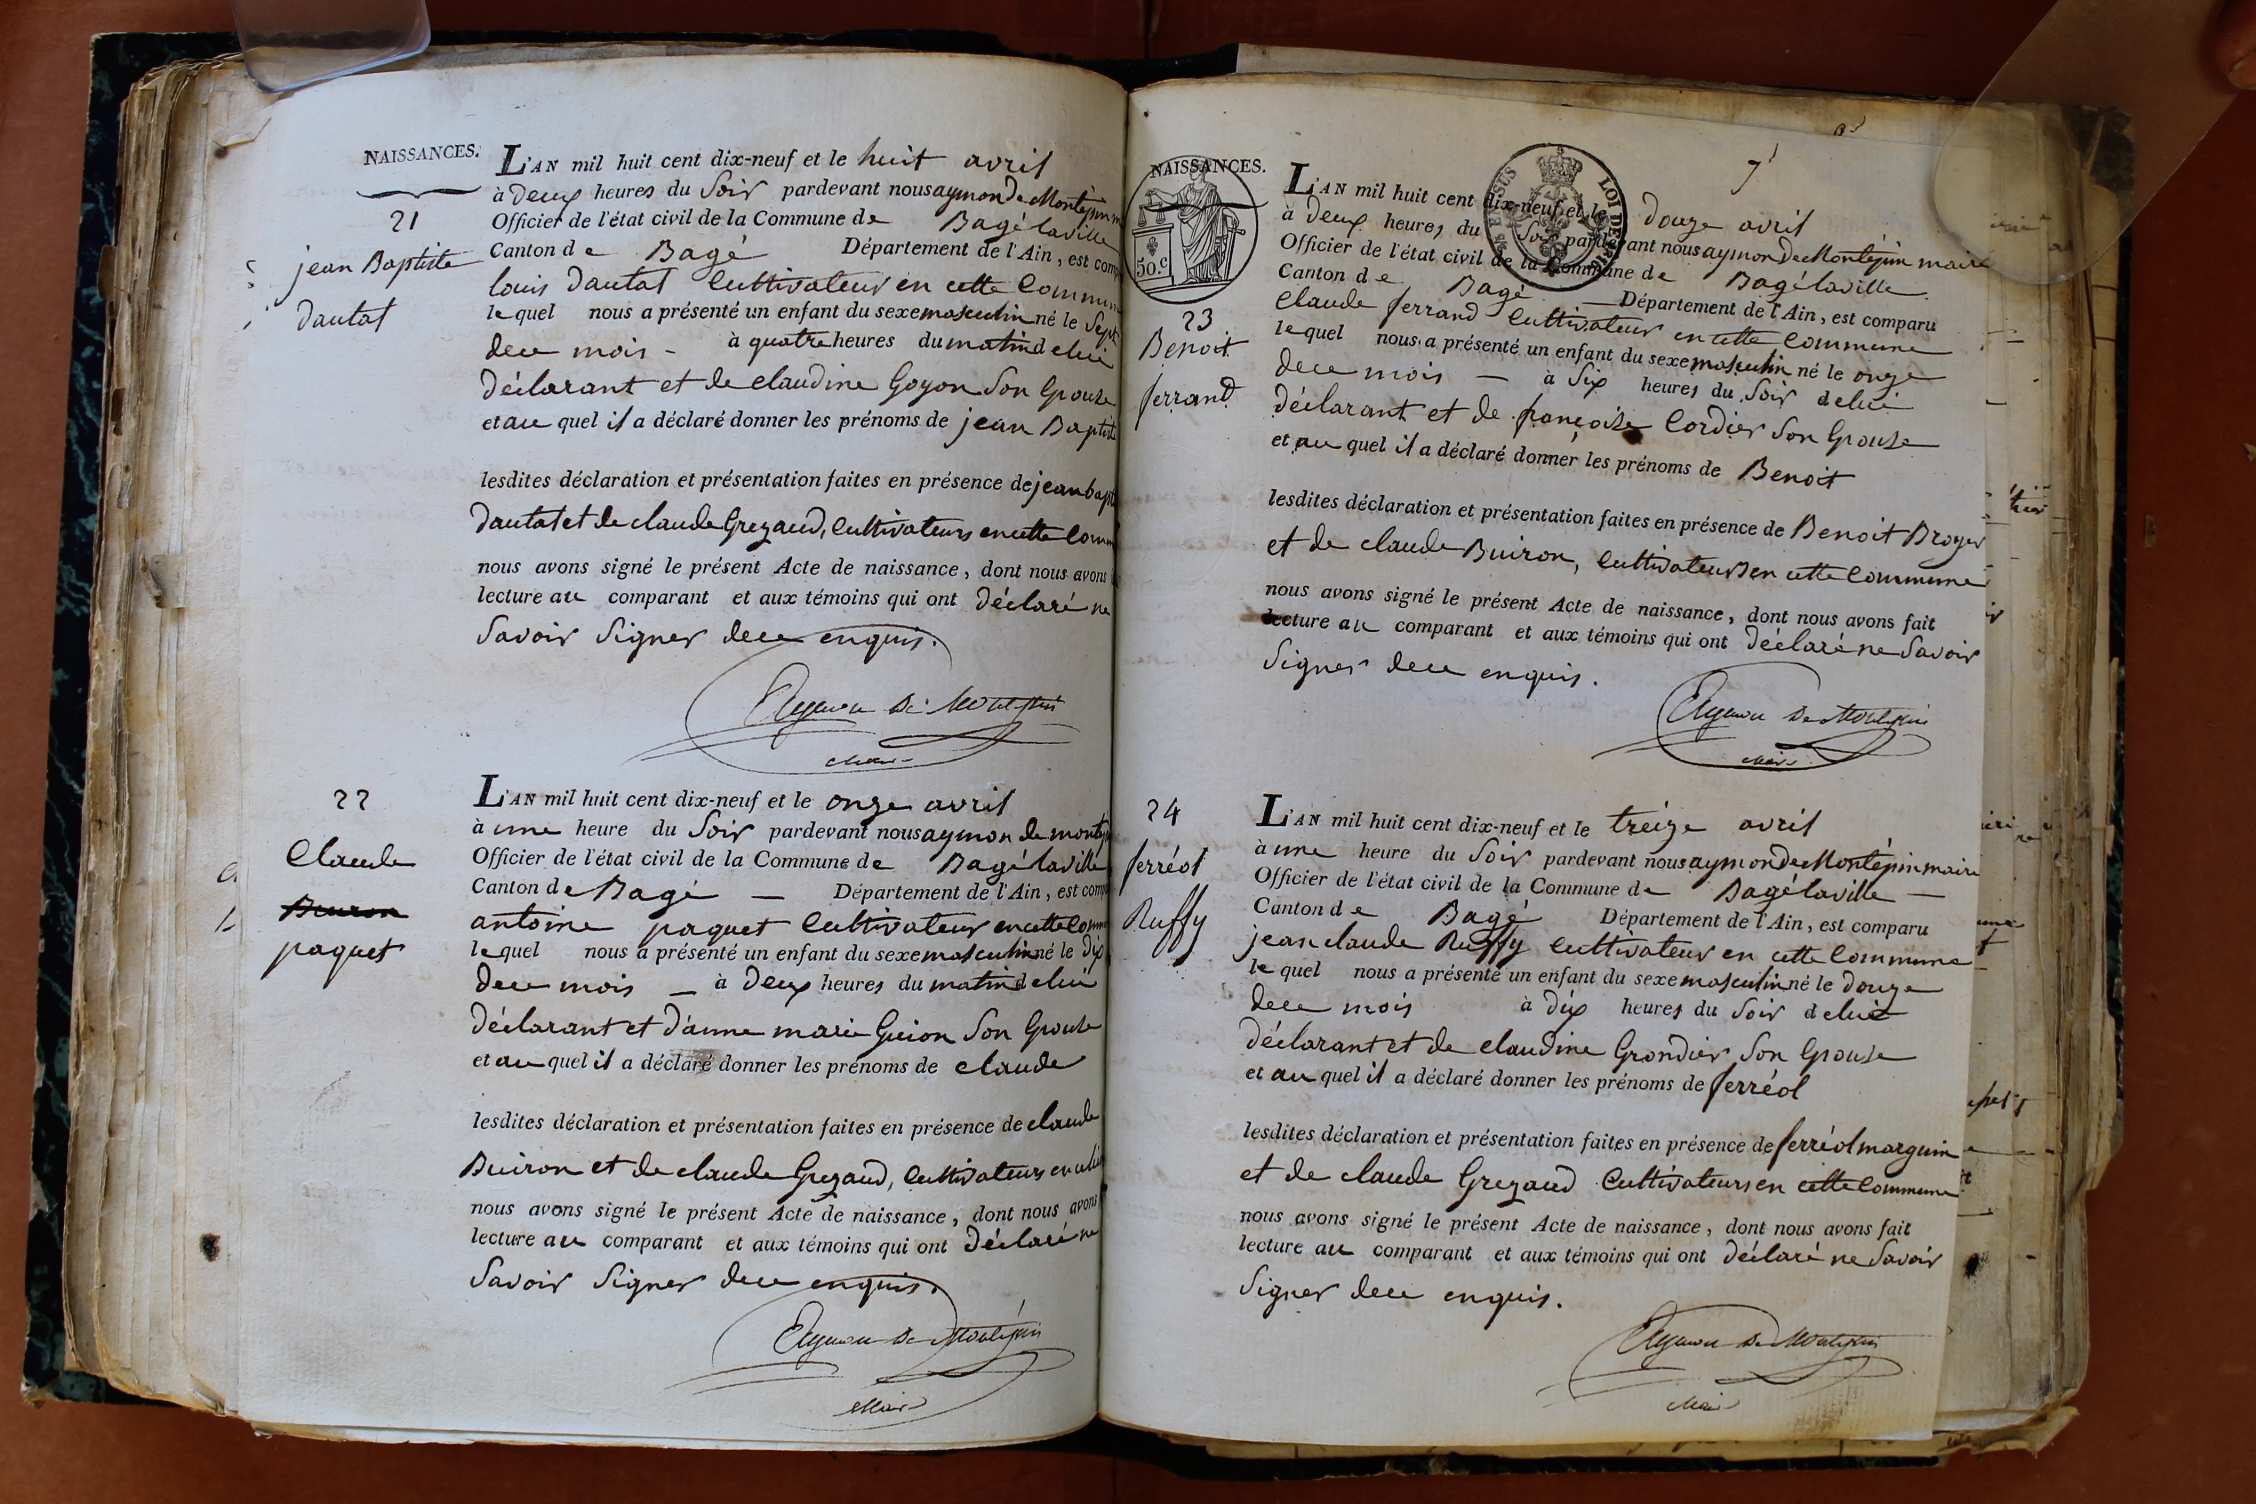 NAISSANCES.
21
jean Baptiste
dautat
L'AN mil huit cent dix-neuf et le huit avril
à deux heures du Soir pardevant nous aymon de Montépin
Officier de l'état civil de la Commune de Bagé laville
Canton de Bagé Département de l'Ain, est comp
louis dautat Cultivateur en cette Commune
lequel nous a présenté un enfant du sexe masculin né le Sept
dece mois - à quatre heures du matin de lui
déclarant et de claudine Goyon Son Epouse
et au quel il a déclaré donner les prénoms de jean Baptiste
lesdites déclaration et présentation faites en présence de jean bapt
dautat et de claude Grezaud, Cultivateurs en cette Comm
nous avons signé le présent Acte de naissance, dont nous avons
lecture au comparant et aux témoins qui ont déclaré ne
Savoir Signer dece enquis.
Aymon De Montépin
Maire
22
Claude
Buiron
paquet
L'AN mil huit cent dix-neuf et le onze avril
à une heure du Soir pardevant nous aymon de montép
Officier de l'état civil de la Commune de Bagé laville
Canton de Bagé — Département de l'Ain, est comp
antoine paquet Cultivateur en cette Comm
lequel nous a présenté un enfant du sexe masculin né le dix
dece mois — à deux heures du matin de lui
déclarant et d'anne marie Guion Son Epouse
et au quel il a déclaré donner les prénoms de claude
lesdites déclaration et présentation faites en présence de claude
Buiron et de claude Grezaud, Cultivateurs en
nous avons signé le présent Acte de naissance, dont nous avons
lecture au comparant et aux témoins qui ont déclaré ne
Savoir Signer dece enquis.
Aymon De Montépin
Maire
7
NAISSANCES.
50.c
LOI DE
23
Benoit
ferrand
L'AN mil huit cent dix-neuf et le douze avril
à deux heures du Soir pardevant nous aymon de Montépin maire
Officier de l'état civil de la Commune de Bagé laville
Canton de Bagé — Département de l'Ain, est comparu
Claude ferrand Cultivateur en cette Commune
lequel nous a présenté un enfant du sexe masculin né le onze
dece mois — à Six heures du Soir de lui
déclarant et de françoise Cordier Son Epouse
et au quel il a déclaré donner les prénoms de Benoit
lesdites déclaration et présentation faites en présence de Benoit Broyer
et de claude Buiron, Cultivateurs en cette Commune
nous avons signé le présent Acte de naissance, dont nous avons fait
lecture au comparant et aux témoins qui ont déclaré ne Savoir
Signer dece enquis.
Aymon De Montépin
Maire
24
ferréol
Ruffy
L'AN mil huit cent dix-neuf et le treize avril
à une heure du Soir pardevant nous aymon de Montépin maire
Officier de l'état civil de la Commune de Bagé laville —
Canton de Bagé Département de l'Ain, est comparu
jean claude Ruffy Cultivateur en cette Commune
lequel nous a présenté un enfant du sexe masculin né le douze
dece mois à dix heures du Soir de lui
déclarant et de claudine Grondier Son Epouse
et au quel il a déclaré donner les prénoms de ferréol
lesdites déclaration et présentation faites en présence de ferréol marguin
et de claude Grezaud Cultivateurs en cette Commune
nous avons signé le présent Acte de naissance, dont nous avons fait
lecture au comparant et aux témoins qui ont déclaré ne Savoir
Signer dece enquis.
Aymon De Montépin
Maire